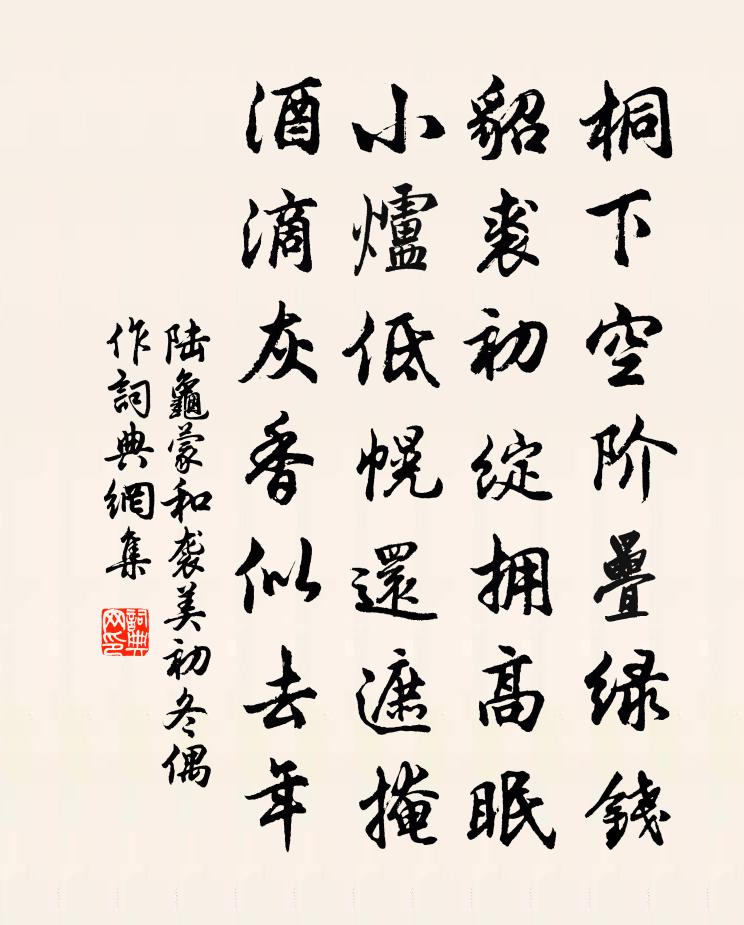 桐下空阶疊绿錢
貂裘初绽拥高眠
小爐低幌還遮掩
酒滴灰香似去年
陆龜蒙和袭美初冬偶
作詞典網集
詞典
网印